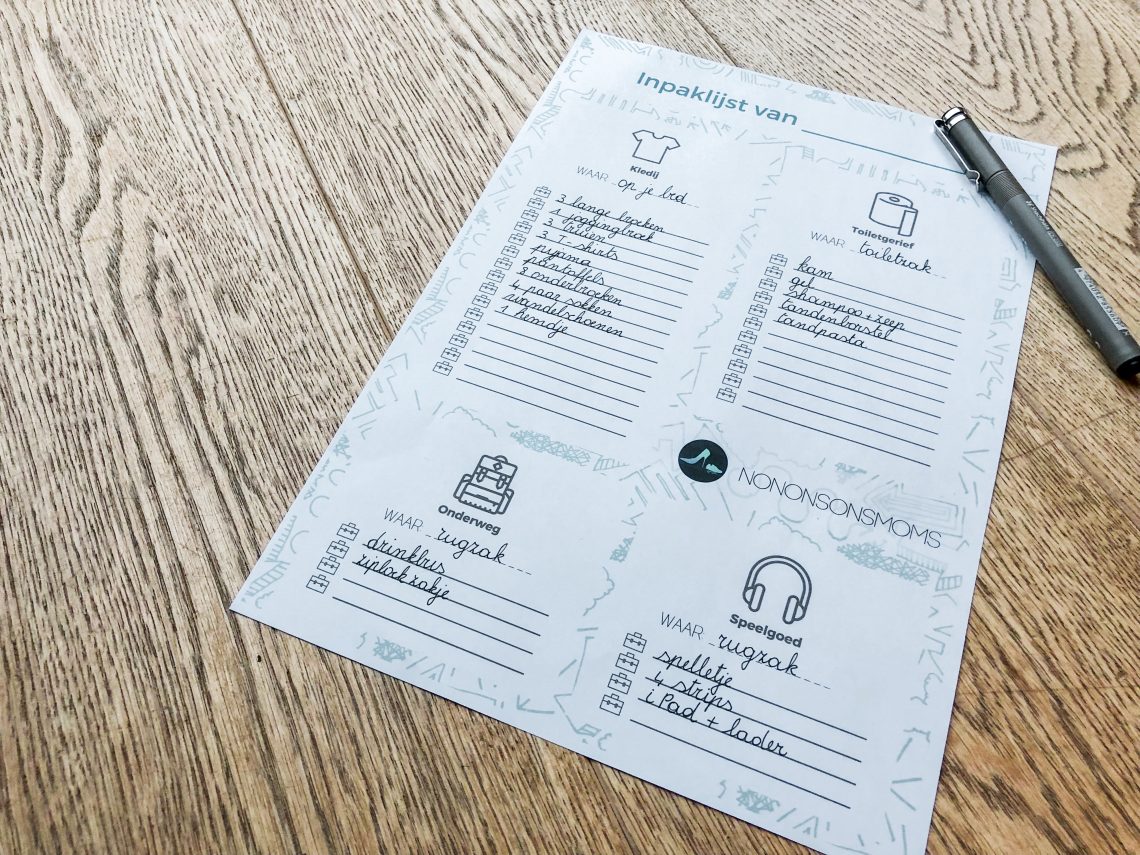 Inpaklijst van
Kledij
WAAR op je bed
3 lange broeken
1 joggingbroek
3 truien
3 T-shirts
pyjama
pantoffels
8 onderbroeken
4 paar sokken
wandelschoenen
1 hemdje
Toiletgerief
WAAR toiletzak
kam
gel
shampoo + zeep
tandenborstel
tandpasta
NONONSONSMOMS
Onderweg
WAAR rugzak
drinkbus
ziplockzakje
Speelgoed
WAAR rugzak
spelletje
4 strips
iPad + lader